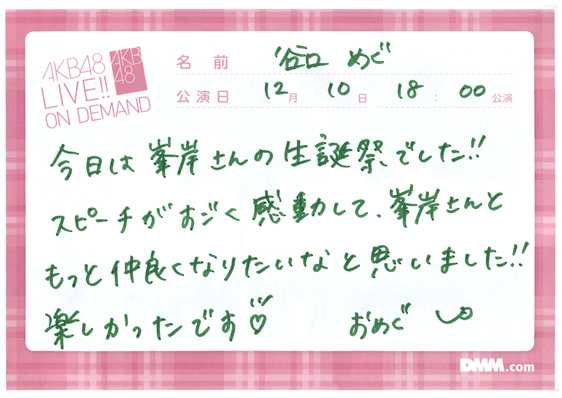 AKB48
LIVE!!
ON DEMAND
AKB
48
名前 谷口 めぐ
公演日 12月 10日 18:00公演
今日は 峯岸さんの生誕祭でした!!
スピーチがすごく感動して、峯岸さんと
もっと仲良くなりたいなと思いました!!
楽しかったです♡ おめぐ
DMM.com